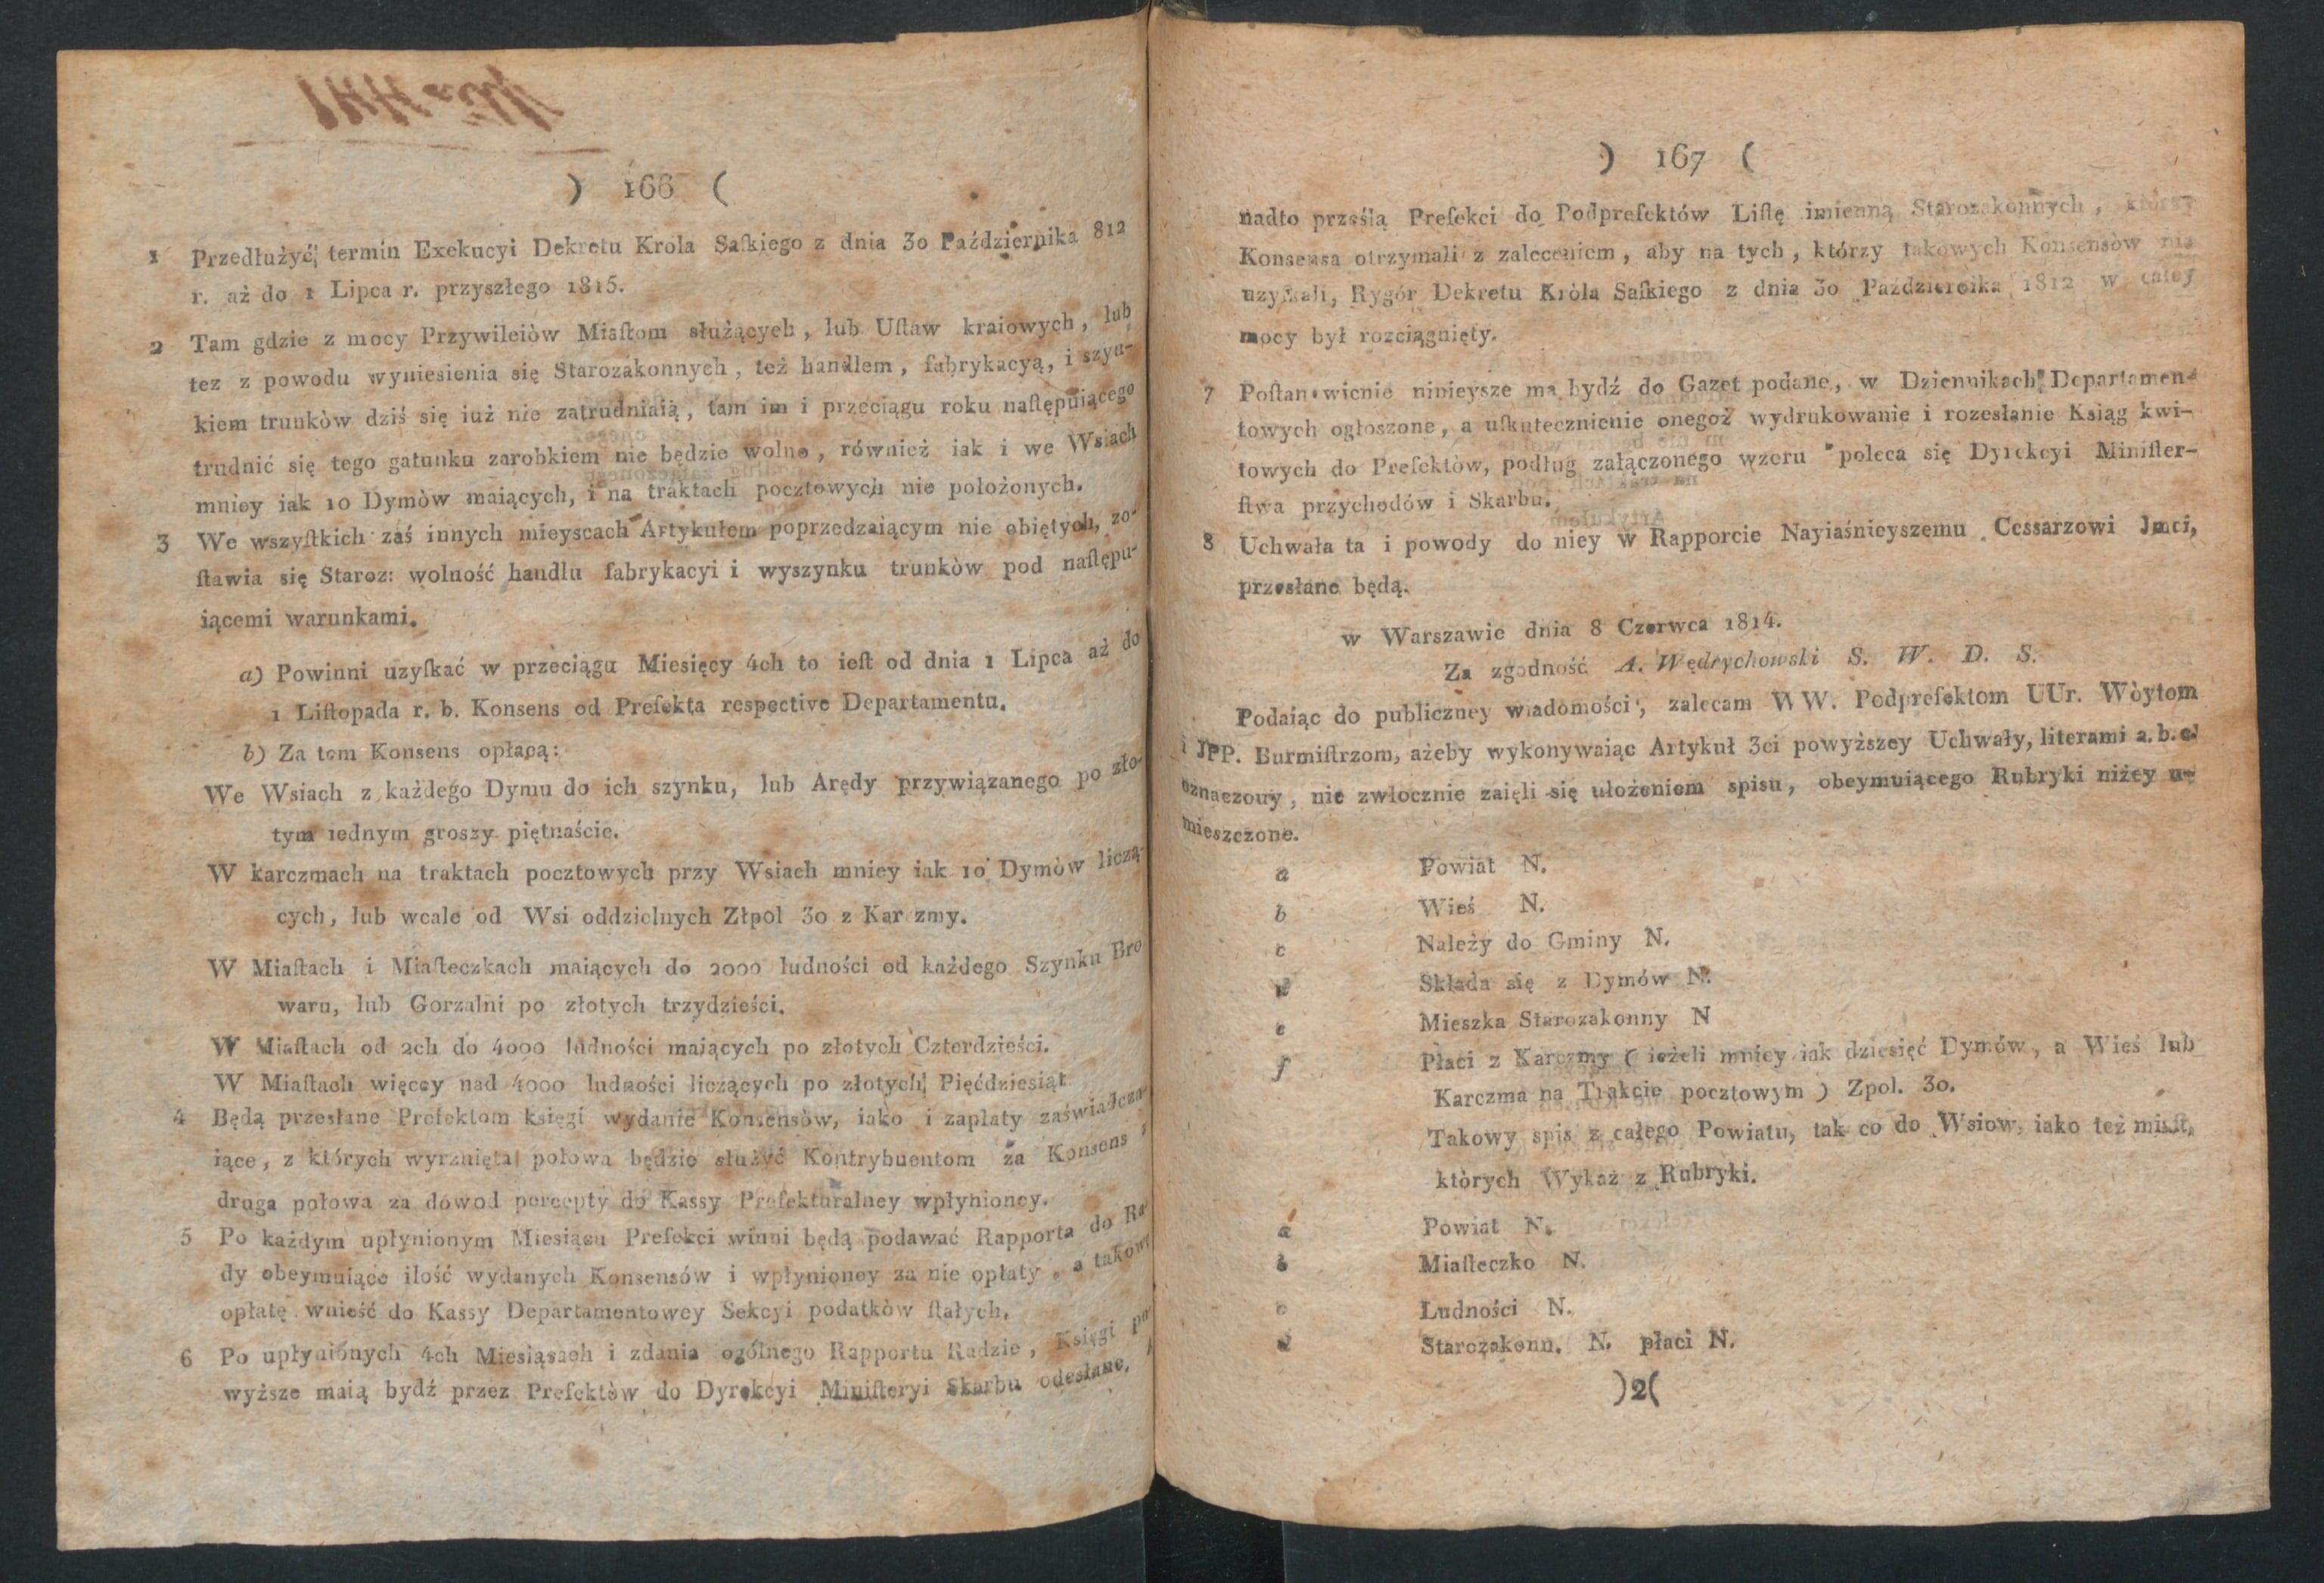 ) 166 (
1 Przedłużyć termin Exekucyi Dekretu Krola Saſkiego z dnia 30 Października 812
r. aż do 1 Lipca r. przyszłego 1815.
2 Tam gdzie z mocy Przywileiòw Miaſtom służących, lub Uſtaw kraiowych, lub
tez z powodu wyniesienia się Starozakonnych, też handlem, fabrykacyą, i szyn-
kiem trunkòw dziś się iuż nie zatrudniaią, tam im i przeciągu roku naſtępuiącego
trudnić się tego gatunku zarobkiem nie będzie wolno, również iak i we Wsiach
mniey iak 10 Dymòw maiących, i na traktach pocztowych nie położonych.
3 We wszyſtkich zaś innych mieyscach Artykułem poprzedzaiącym nie obiętych, zo-
ſtawia się Staroz: wolność handlu fabrykacyi i wyszynku trunkòw pod naſtępu-
iącemi warunkami.
a) Powinni uzyſkać w przeciągu Miesięcy 4ch to ieſt od dnia 1 Lipca aż do
1 Liſtopada r. b. Konsens od Prefekta respective Departamentu.
b) Za tem Konsens opłacą:
We Wsiach z każdego Dymu do ich szynku, lub Arędy przywiązanego po zło-
tym iednym groszy piętnaście.
W karczmach na traktach pocztowych przy Wsiach mniey iak 10 Dymòw liczą-
cych, lub wcale od Wsi oddzielnych Złpol 30 z Kar zmy.
W Miaſtach i Miaſteczkach maiących do 2000 ludności od każdego Szynku Bro
waru, lub Gorzalni po złotych trzydzieści.
W Miaſtach od 2ch do 4000 ludności maiących po złotych Czterdzieści.
W Miaſtach więcey nad 4000 ludności liczących po złotych Pięćdziesiąt
4 Będą przesłane Prefektom księgi wydanie Konsensòw, iako i zapłaty zaświadcza-
iące, z których wyrznięta połowa będzie służyć Kontrybuentom za Konsens a
druga połowa za dowod percepty do Kassy Prefekturalney wpłynioney.
5 Po każdym upłynionym Miesiącu Prefekci winni będą podawać Rapporta do Ra-
dy obeymuiące ilość wydanych Konsensów i wpłynioney za nie opłaty, a takową
opłatę wnieść do Kassy Departamentowey Sekcyi podatkòw ſtałych.
6 Po upłynionych 4ch Miesiącach i zdania ogólnego Rapportu Radzie, Księgi po-
wyższe maią bydź przez Prefektòw do Dyrekcyi Miniſteryi Skarbu odesłane,
) 167 (
nadto prześlą Prefekci do Podprefektów Liſtę imienną Starozakonnych, którzy
Konsensa otrzymali z zaleceniem, aby na tych, którzy takowych Konsensòw nie
uzyſkali, Rygór Dekretu Kròla Saſkiego z dnia 30 Października 1812 w całey
mocy był rozciągnięty.
7 Poſtanowienie ninieysze ma bydź do Gazet podane, w Dziennikach Departamen-
towych ogłoszone, a uſkutecznienie onegoż wydrukowanie i rozesłanie Ksiąg kwi-
towych do Prefektòw, podług załączonego wzoru poleca się Dyrekcyi Miniſter-
ſtwa przychodów i Skarbu.
8 Uchwała ta i powody do niey w Rapporcie Nayiaśnieyszemu Cessarzowi Jmci,
przesłane będą.
w Warszawie dnia 8 Czerwca 1814.
Za zgodność A. Wędrychowski S. W. D. S.
Podaiąc do publiczney wiadomości, zalecam WW. Podprefektom UUr. Wòytom
i JPP. Burmiſtrzom, ażeby wykonywaiąc Artykuł 3ci powyższey Uchwały, literami a. b. c.
oznaczony, nie zwłocznie zaięli się ułożeniem spisu, obeymuiącego Rubryki niżey u-
mieszczone.
a Powiat N.
b Wieś N.
c Należy do Gminy N.
d Składa się z Dymów N.
e Mieszka Starozakonny N
f Płaci z Karczmy ( ieżeli mniey iak dziesięć Dymów, a Wieś lub
Karczma na Trakcie pocztowym ) Zpol. 30.
Takowy spis z całego Powiatu, tak co do Wsiow, iako też miaſt,
których Wykaż z Rubryki.
a Powiat N.
b Miaſteczko N.
c Ludności N.
d Starozakonn. N. płaci N.
)2(